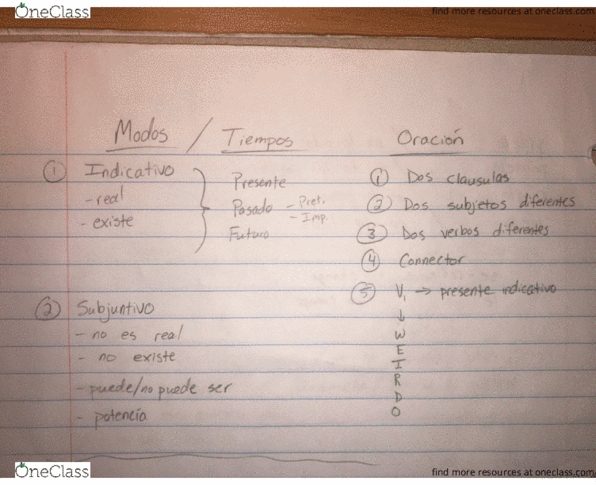 OneClass
find more resources at oneclass.com
Modos / Tiempos
Oración
① Indicativo
- real
- existe
Presente
Pasado - Pret.
- Imp.
Futuro
① Dos clausulas
② Dos subjetos diferentes
③ Dos verbos diferentes
④ Connector
⑤ V₁ → presente indicativo
↓
W
E
I
R
D
O
② Subjuntivo
- no es real
- no existe
- puede/no puede ser
- potencia
OneClass
find more resources at oneclass.com